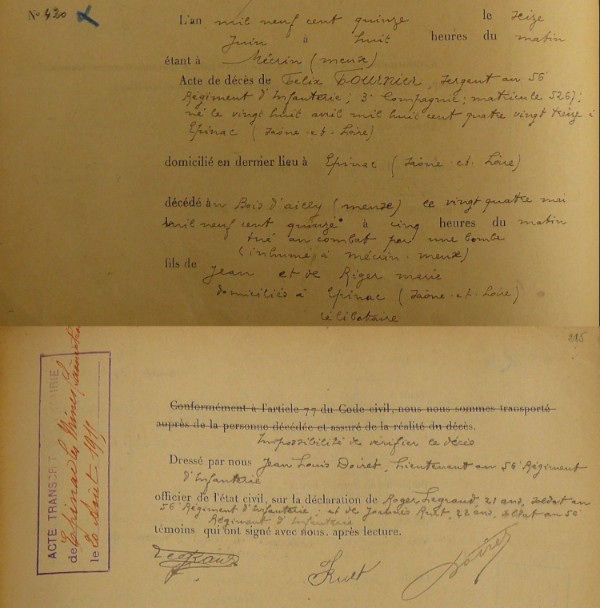 N° 420
L'an mil neuf cent quinze le seize
Juin à huit heures du matin
étant à Mécrin (meuse)
Acte de décès de Félix FOURNIER, sergent au 56e
Régiment d'Infanterie; 3e Compagnie; matricule 5267;
né le vingt huit avril mil huit cent quatre vingt treize à
Epinac (Saône-et-Loire)
domicilié en dernier lieu à Epinac (Saône-et-Loire)
décédé au Bois d'ailly (meuse) le vingt quatre mai
mil neuf cent quinze à cinq heures du matin
tué au combat par une bombe
(inhumé à mécrin-meuse)
fils de Jean et de Riger marie
domiciliés à Epinac (Saône-et-Loire)
célibataire
ACTE TRANSCRIT
de Epinac les Mines
le 20 Août 1915
Conformément à l'article 77 du Code civil, nous nous sommes transporté
auprès de la personne décédée et assuré de la réalité du décès.
Impossibilité de vérifier le décès
Dressé par nous Jean Louis Doiret, Lieutenant au 56e Régiment
d'Infanterie
officier de l'état civil, sur la déclaration de Roger Legrand, 21 ans, soldat au
56e Régiment d'Infanterie; et de Ruet, 22 ans, soldat au 56
Régiment d'Infanterie
témoins qui ont signé avec nous, après lecture.
Legrand Ruet Doiret